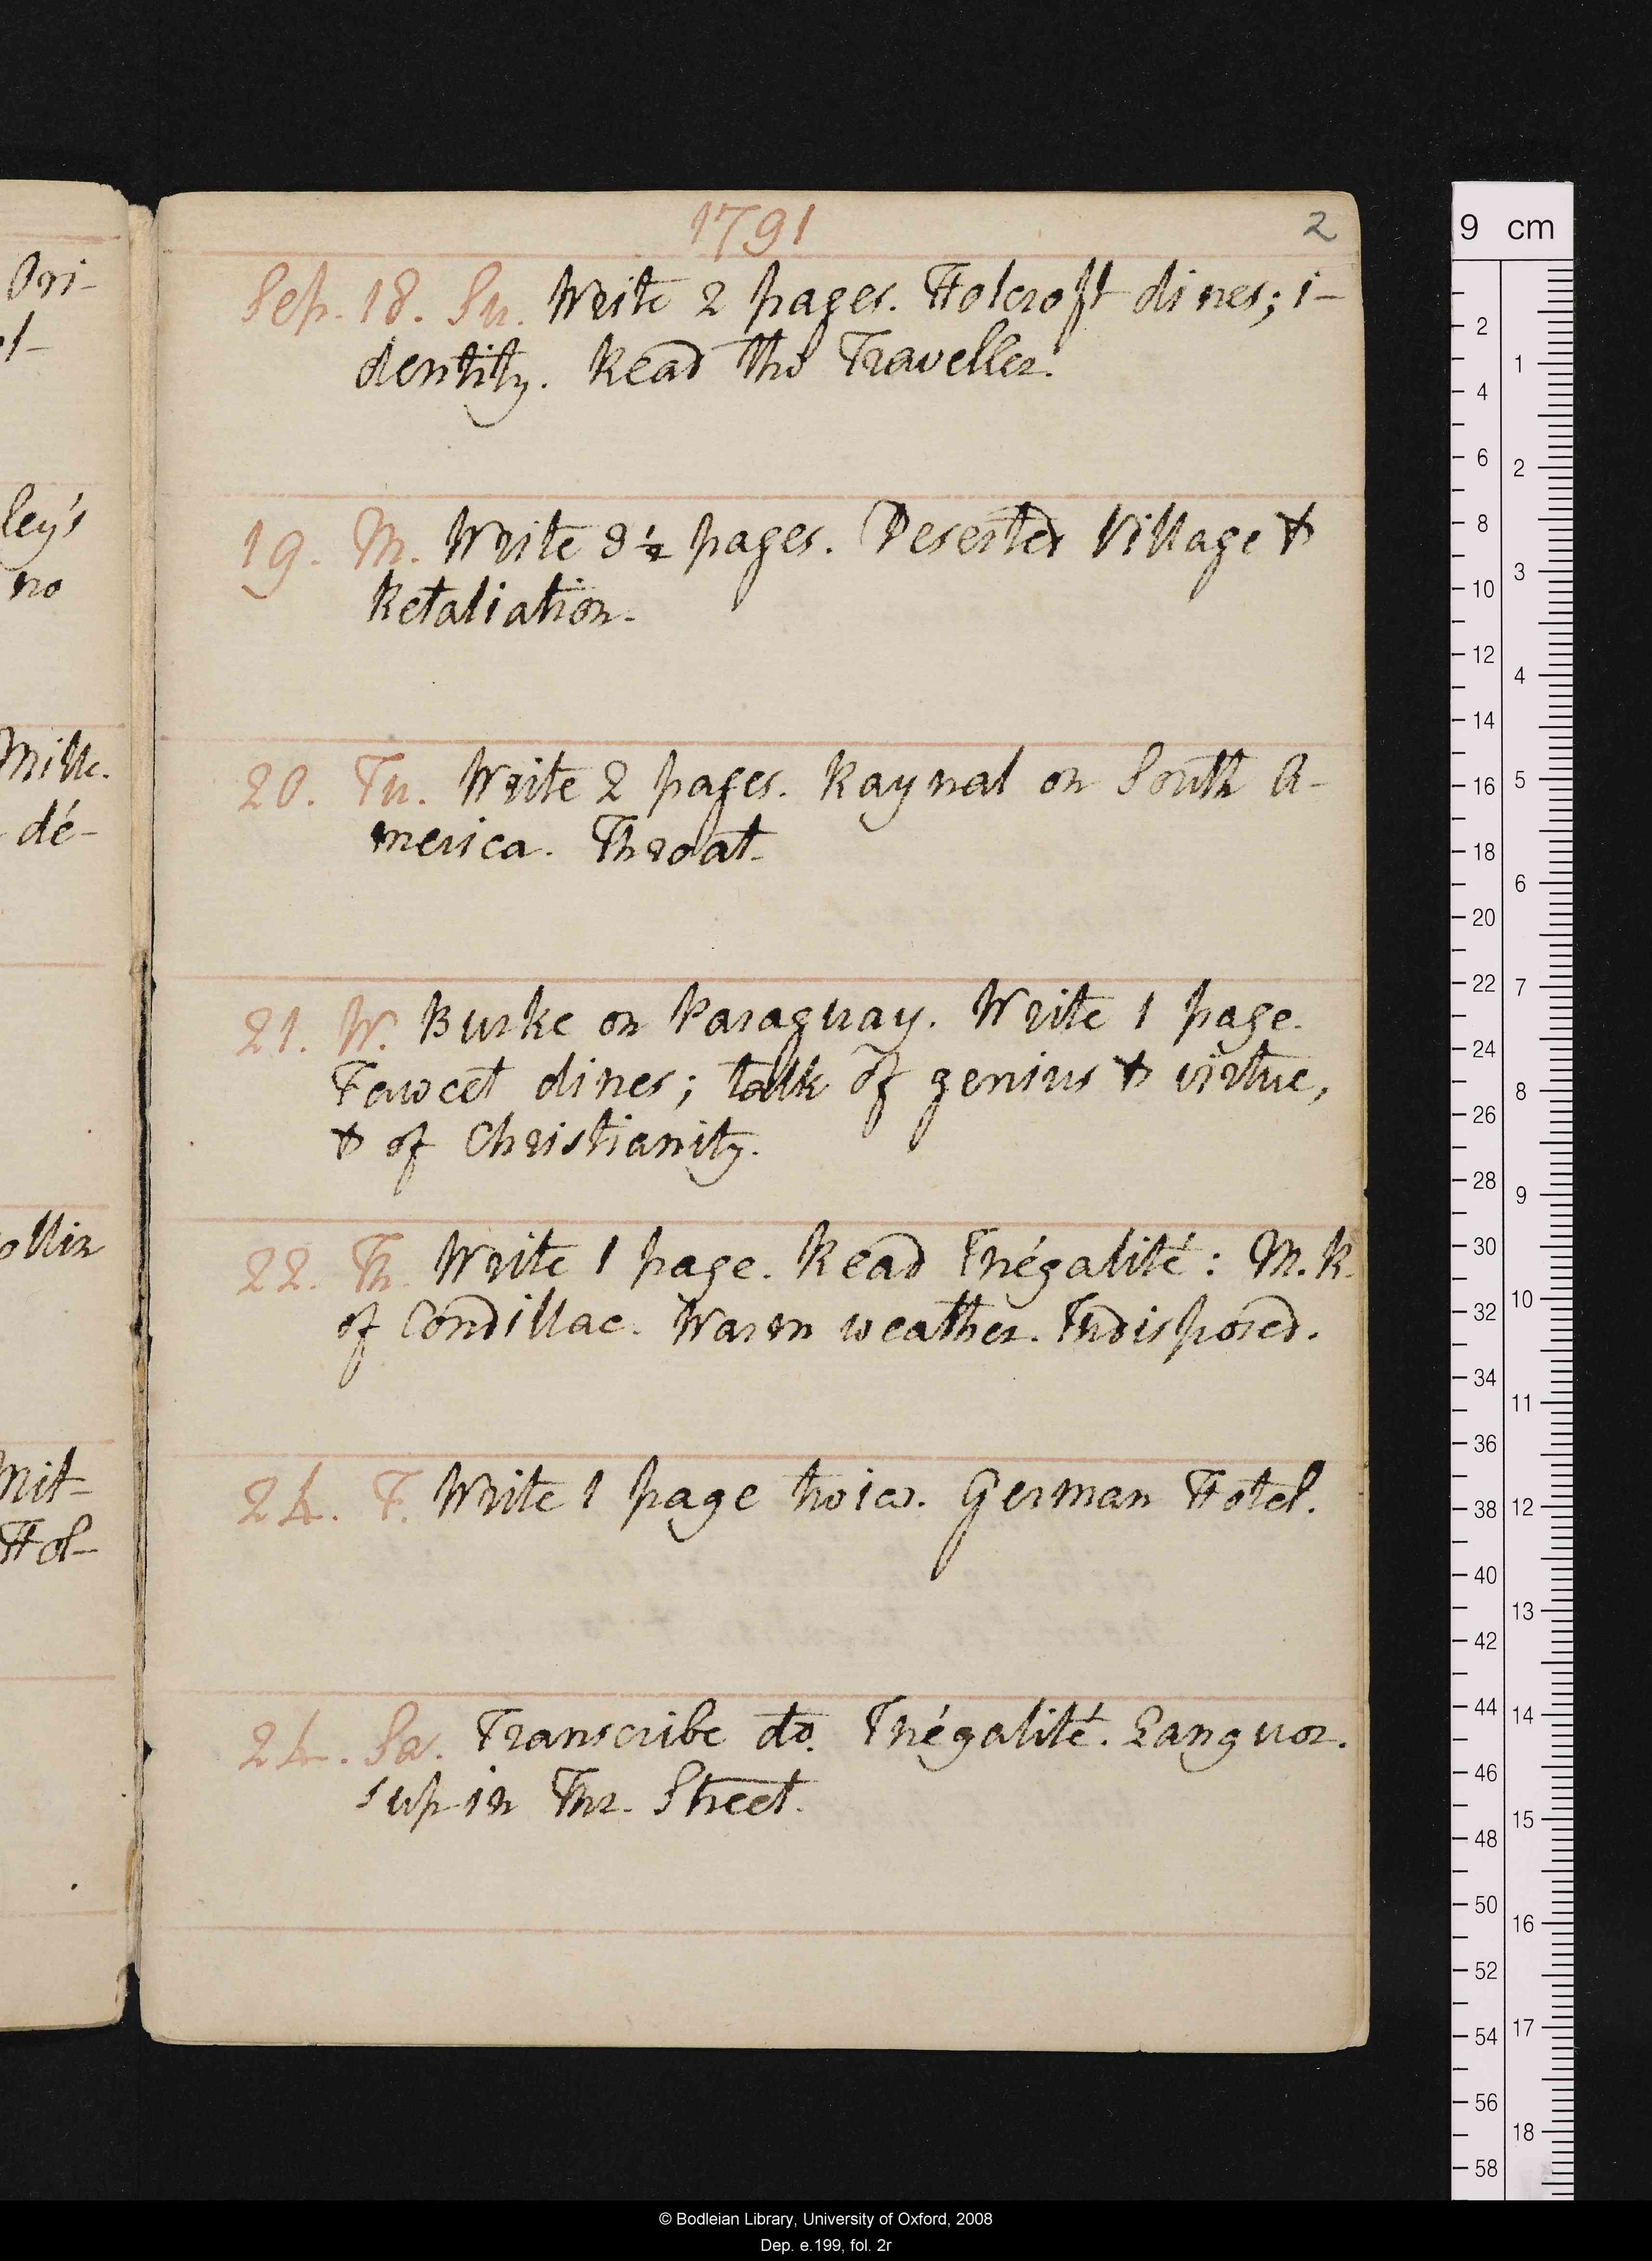 Ori-
el-
ley's
no
Mille.
dé-
ollin
Mit-
Hol-
1791
2
Sep. 18. Su. Write 2 pages. Holcroft dines; i-
dentity. Read the Traveller.
19. M. Write 2½ pages. Deserted Village &
Retaliation.
20. Tu. Write 2 pages. Raynal on South A-
merica. Throat.
21. W. Burke on Paraguay. Write 1 page.
Fawcet dines; talk of genius & virtue,
& of Christianity.
22. Th. Write 1 page. Read Inégalité: M.R.
of Condillac. Warm weather. Indisposed.
24. F. Write 1 page twice. German Hotel.
24. Sa. Transcribe do. Inégalité. Languor.
sup in Thr. Street.
9 cm
2
1
4
6
2
8
3
10
12
4
14
16
5
18
6
20
22
7
24
8
26
28
9
30
10
32
34
11
36
38
12
40
13
42
44
14
46
15
48
50
16
52
54
17
56
18
58
© Bodleian Library, University of Oxford, 2008
Dep. e.199, fol. 2r